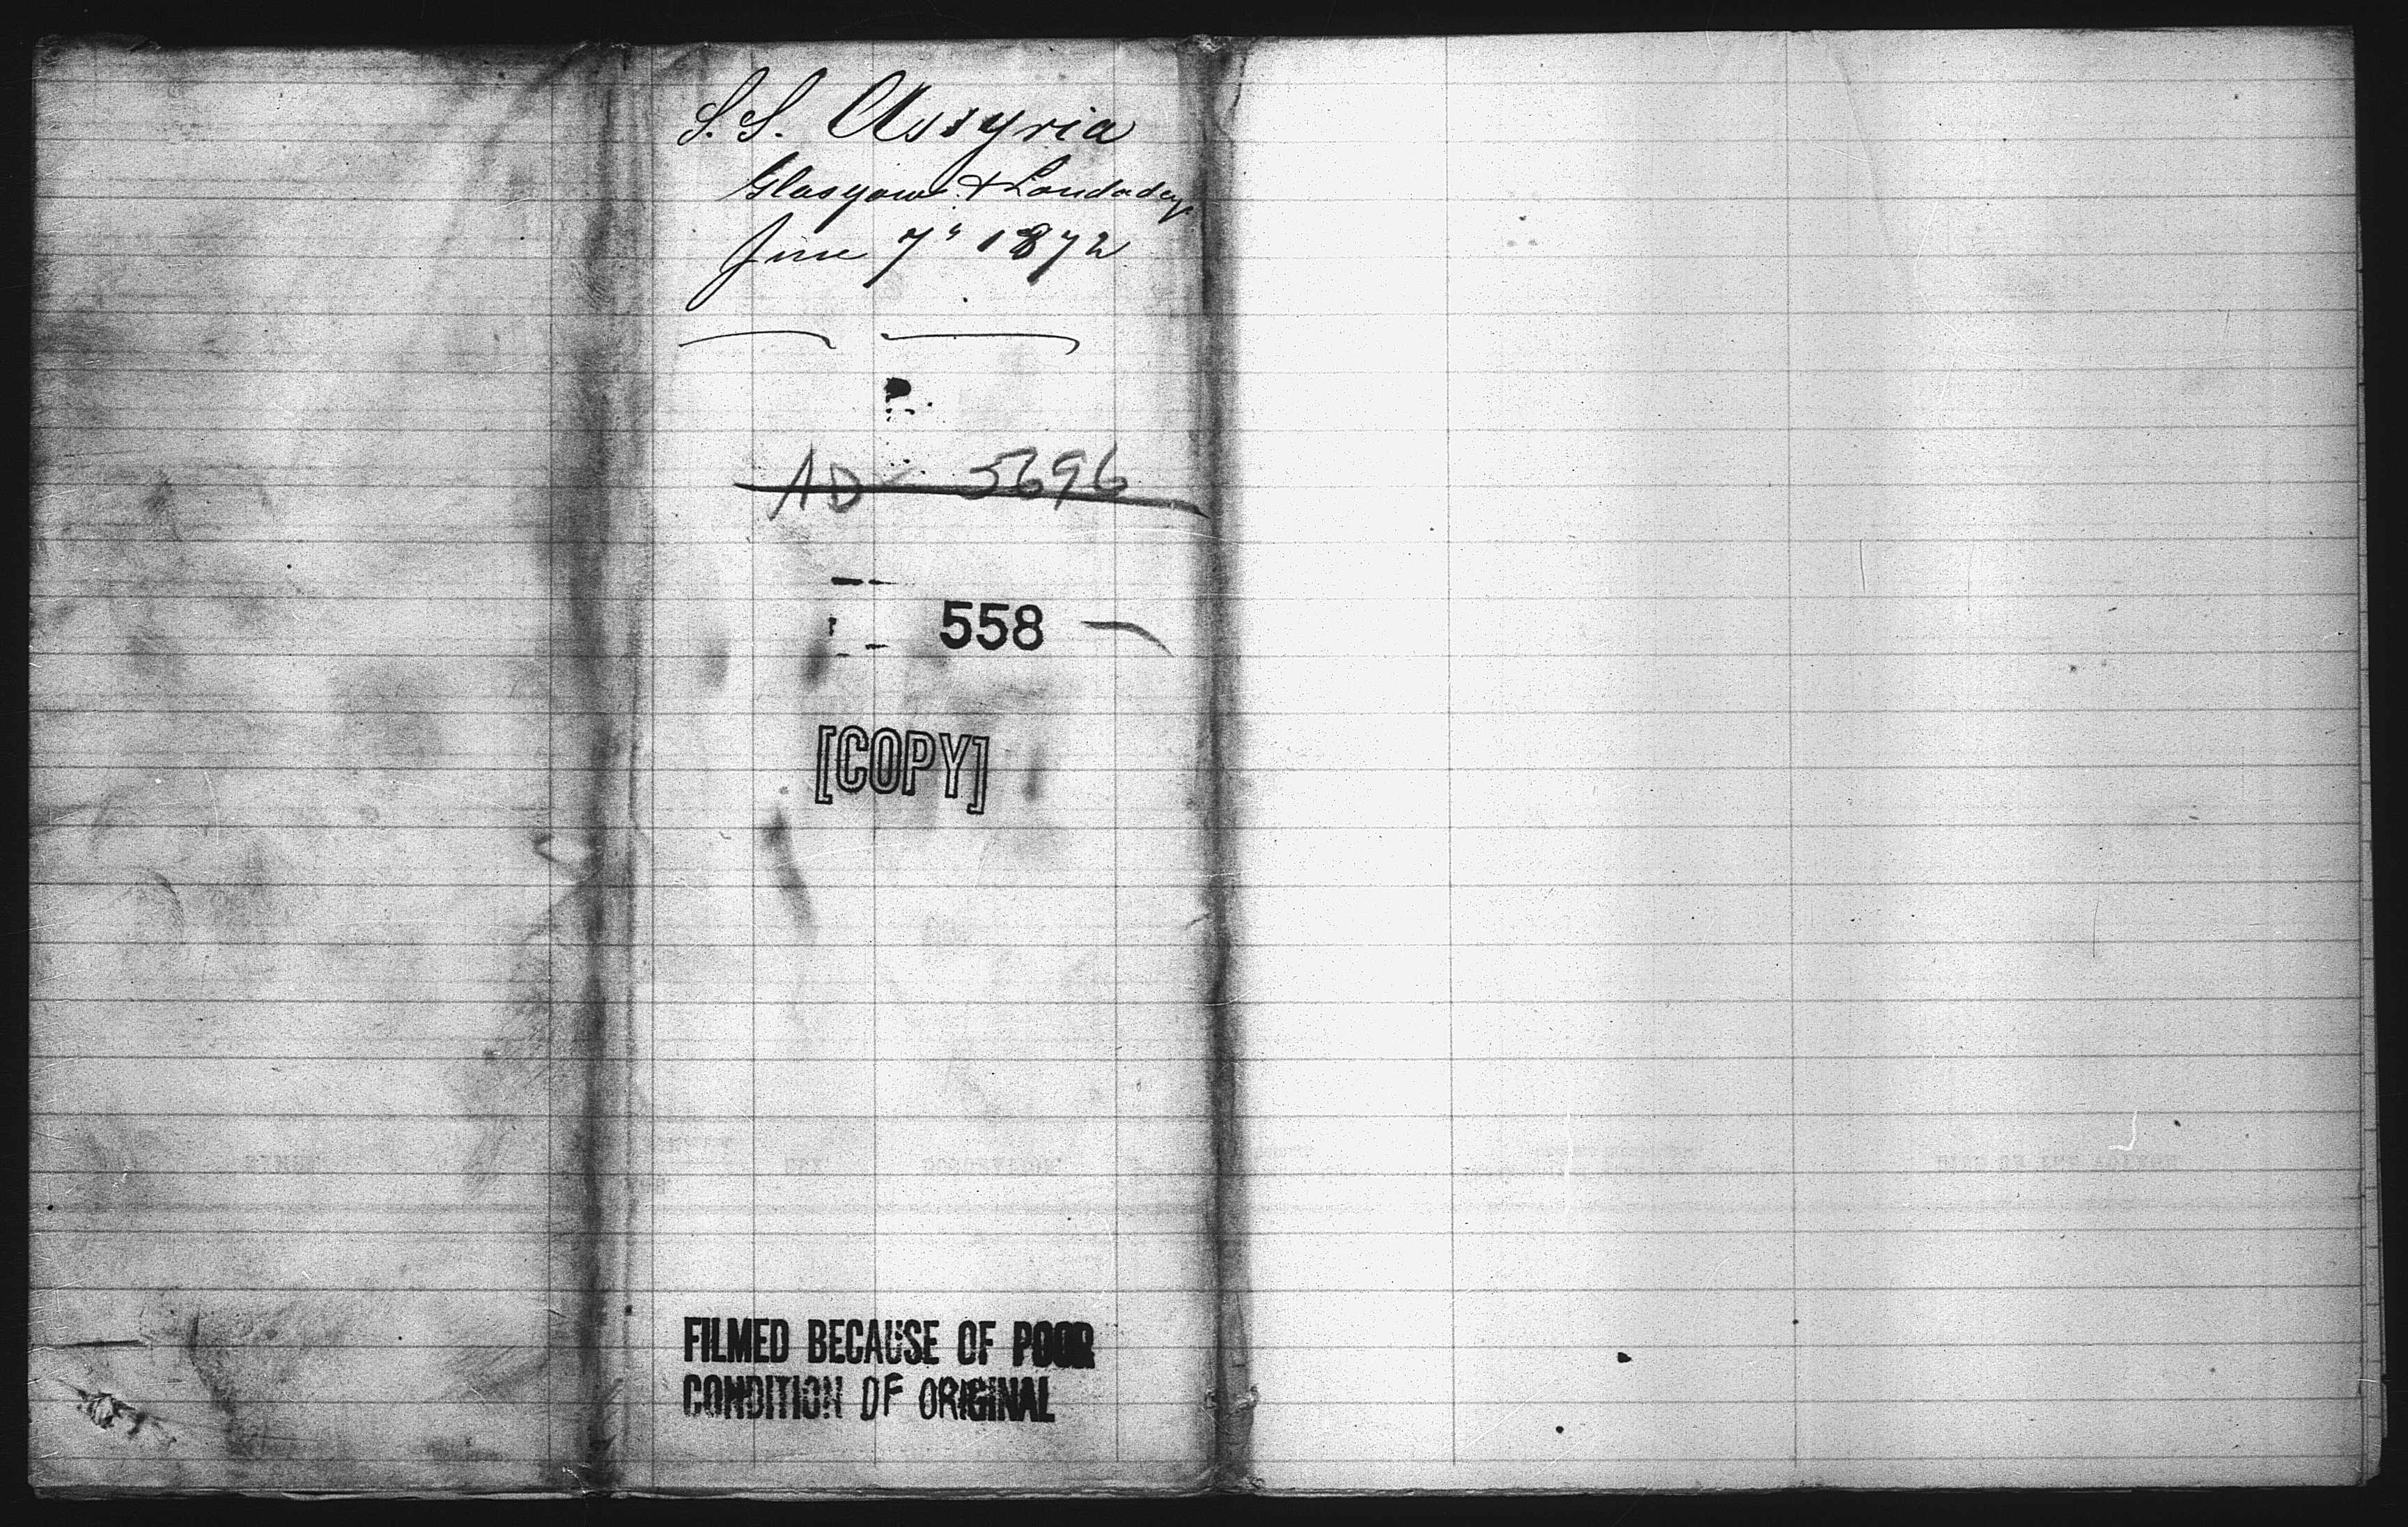 S.S. Assyria
Glasgow & Londody
June 7" 1872
AD 5696
558
[COPY]
FILMED BECAUSE OF POOR
CONDITION OF ORIGINAL